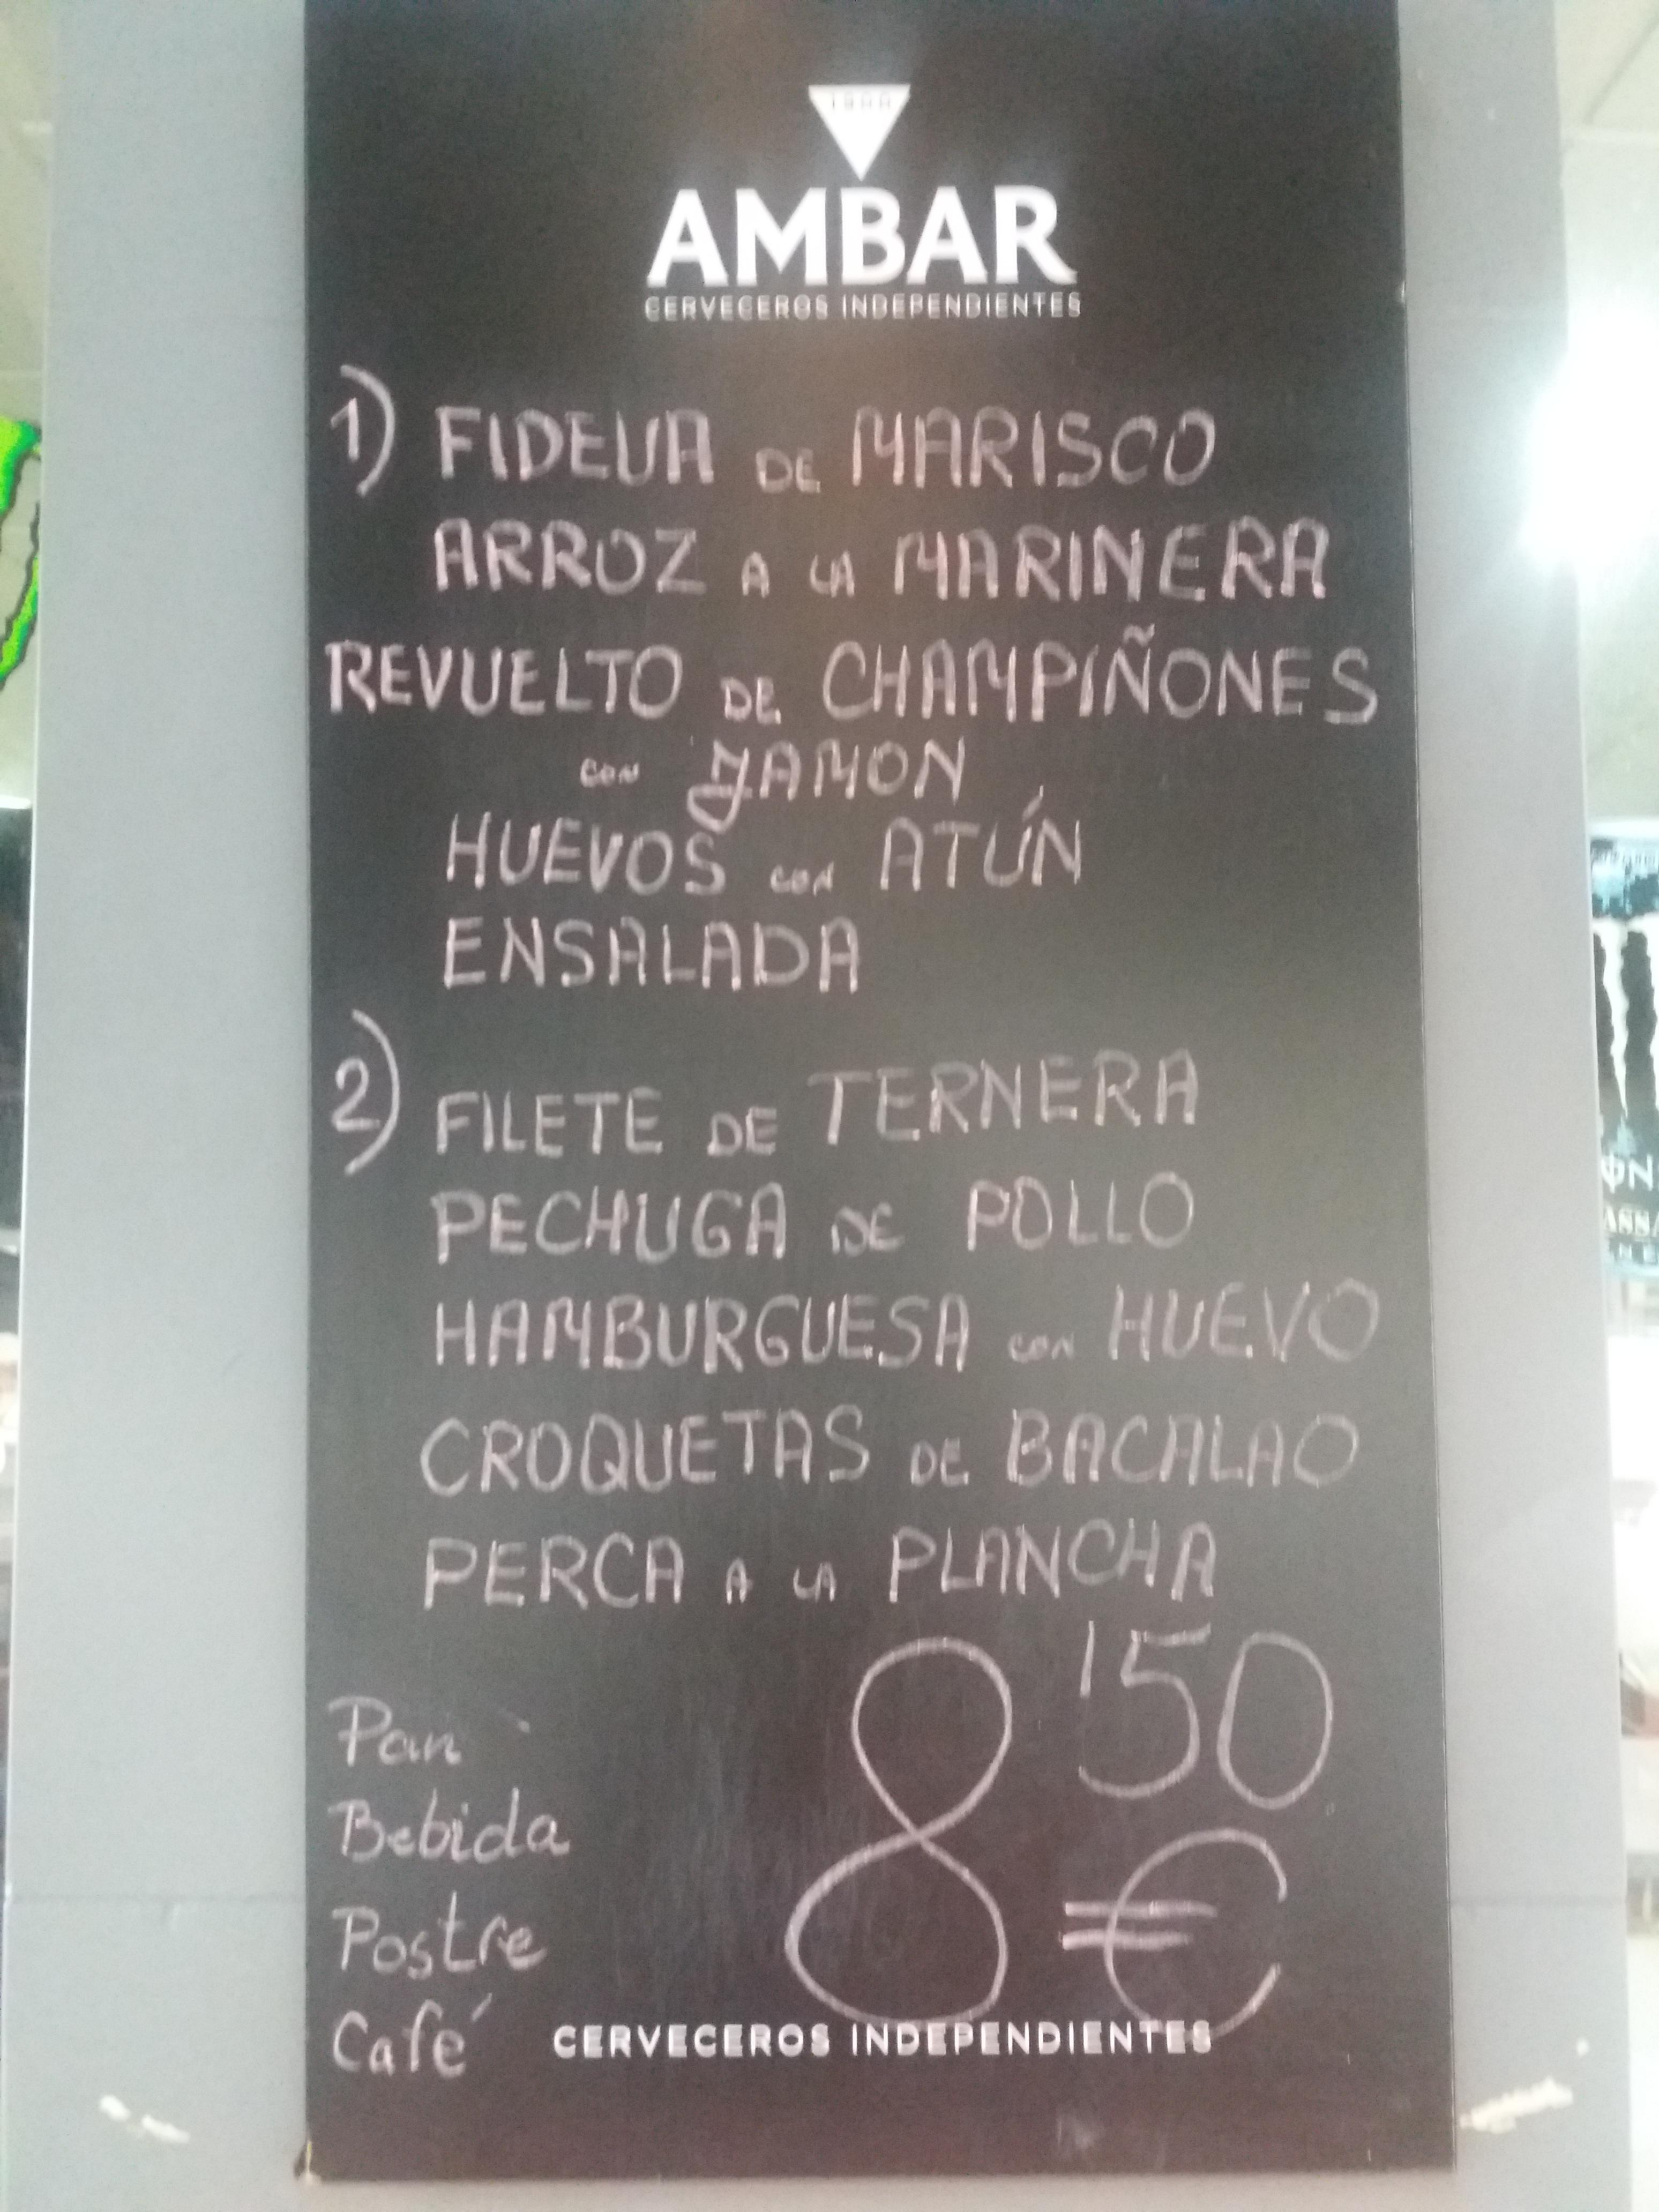 1900
AMBAR
CERVECEROS INDEPENDIENTES
1) FIDEUA DE MARISCO
ARROZ A LA MARINERA
REVUELTO DE CHAMPIÑONES
con JAMON
HUEVOS con ATÚN
ENSALADA
2) FILETE DE TERNERA
PECHUGA DE POLLO
HAMBURGUESA con HUEVO
CROQUETAS DE BACALAO
PERCA A LA PLANCHA
8'50
€
Pan
Bebida
Postre
Café
CERVECEROS INDEPENDIENTES